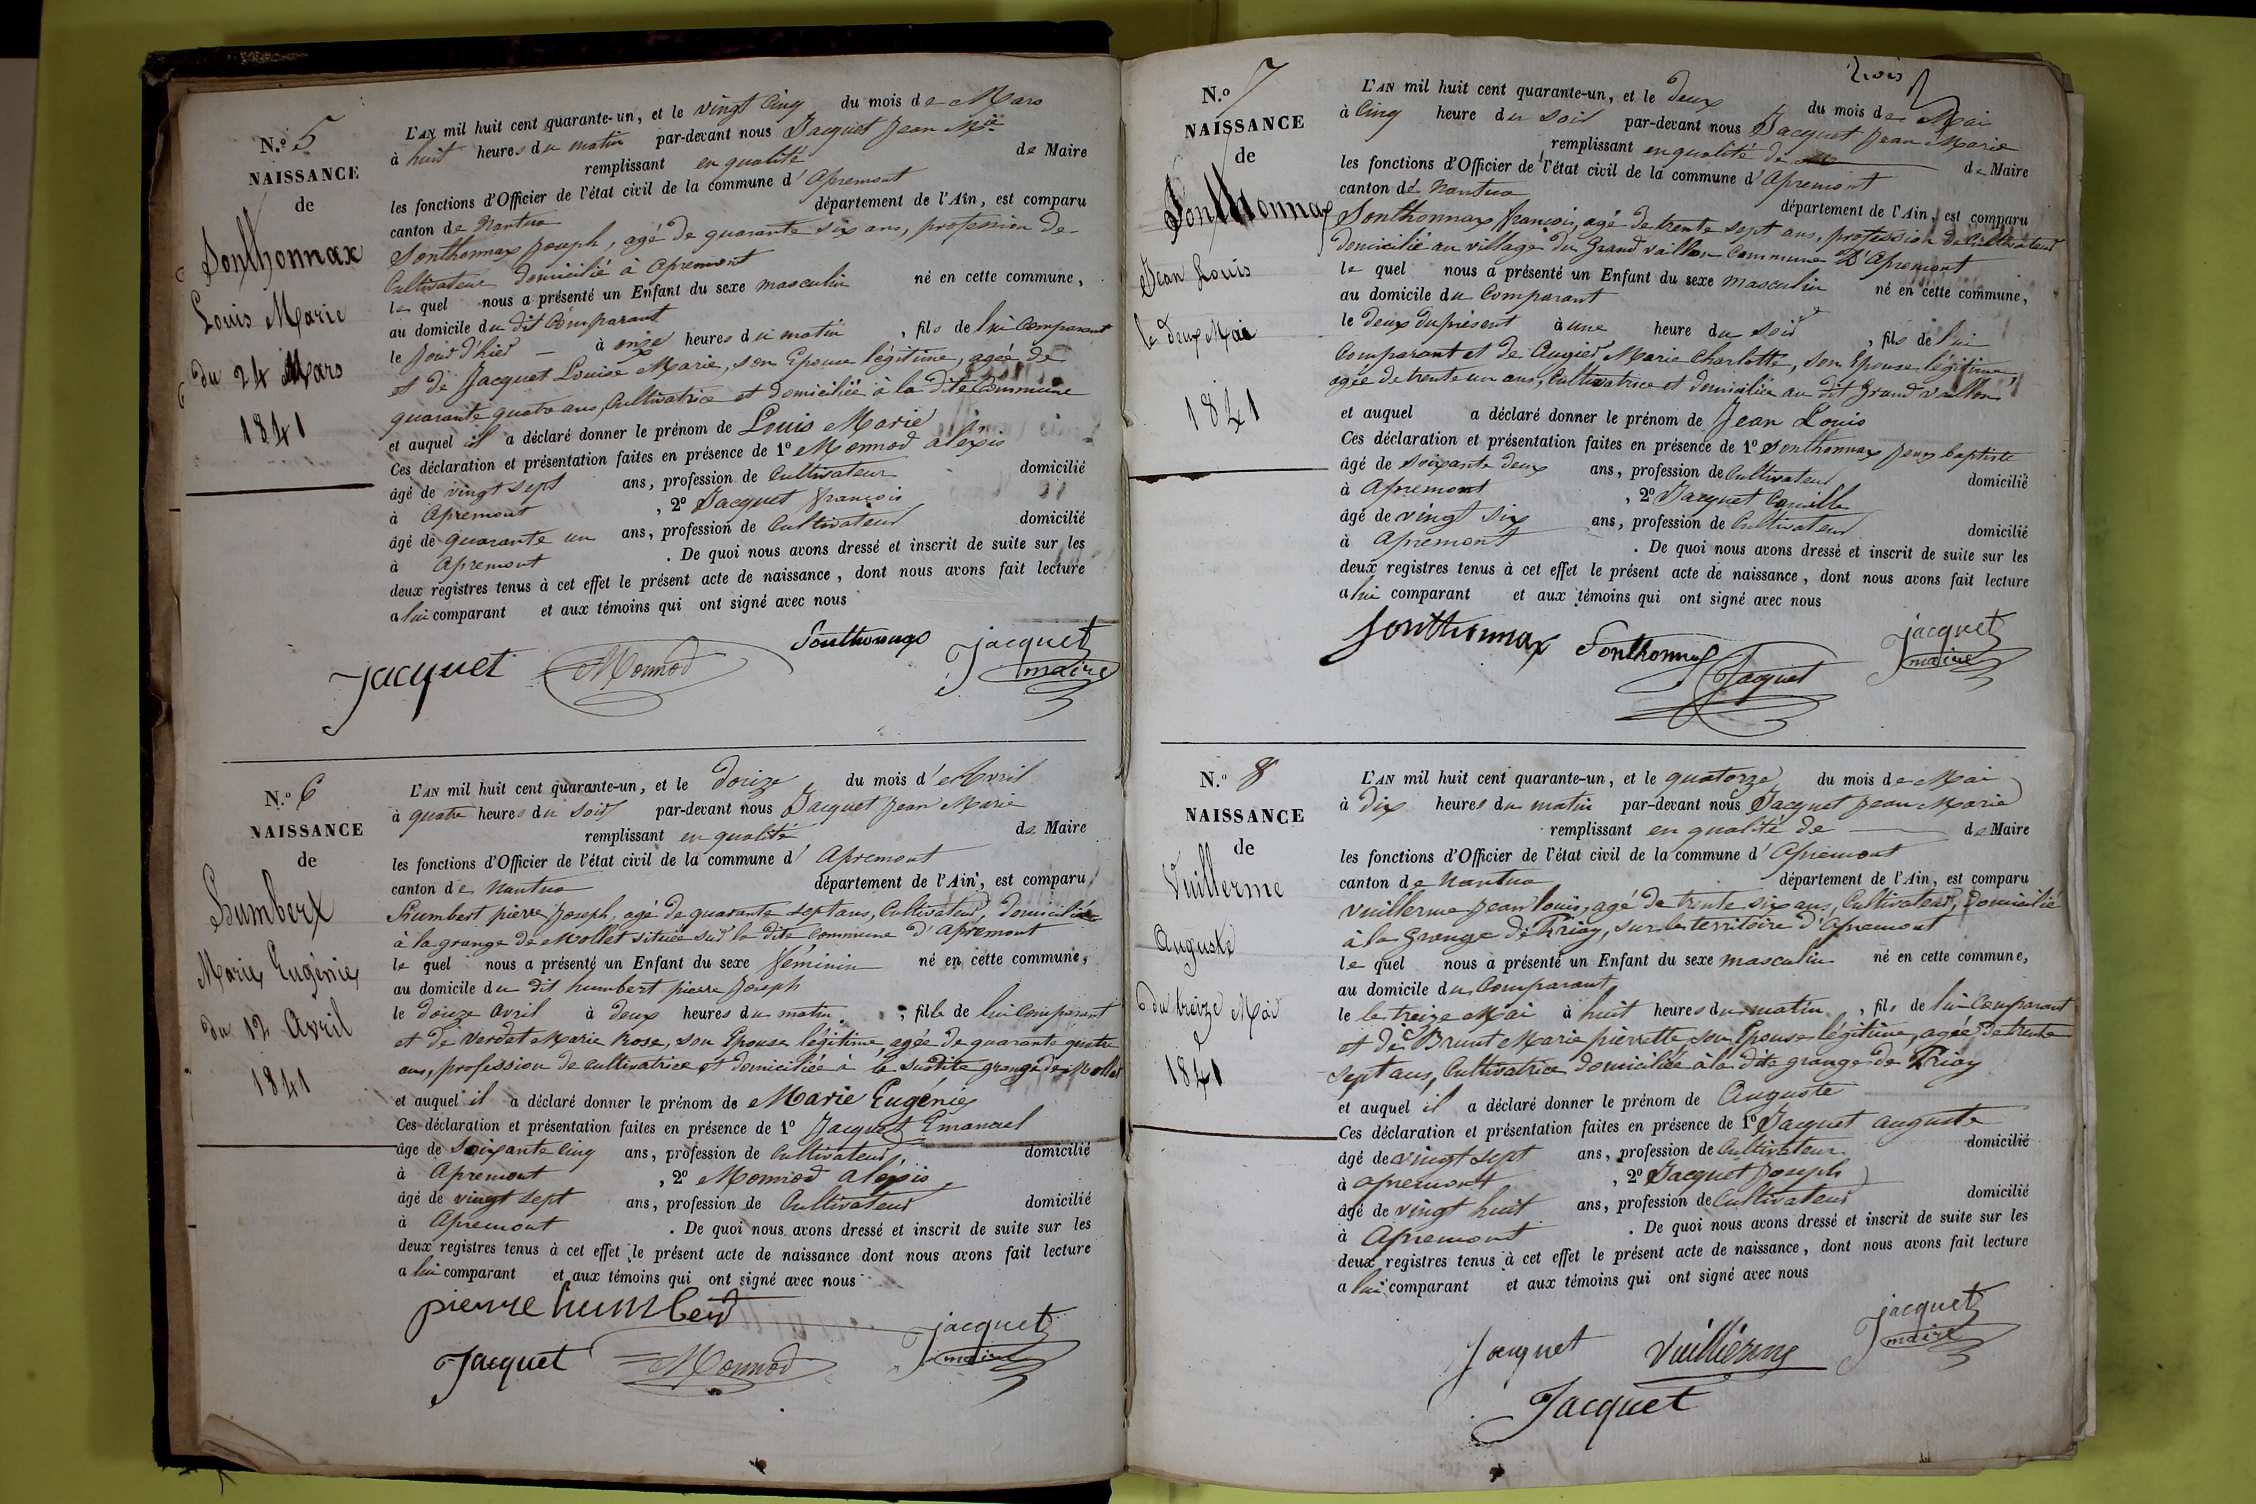 N.º 5
NAISSANCE
de
Sonthonnax
Louis Marie
du 24 Mars
1841
L'AN mil huit cent quarante-un, et le vingt Cinq du mois de Mars
à huit heures du matin par-devant nous Jacquet Jean Mie
remplissant en qualité de Maire
les fonctions d'Officier de l'état civil de la commune d'Apremont
canton de Nantua département de l'Ain, est comparu
Sonthonnax Joseph, agé de quarante six ans, profession de
Cultivateur domicilié à Apremont
le quel nous a présenté un Enfant du sexe masculin né en cette commune,
au domicile du dit Comparant
le jour d'hier à onze heures du matin, fils de lui Comparant
et de Jacquet Louise Marie, son Epouse légitime, agée de
quarante quatre ans, Cultivatrice et domiciliée à la dite Commune
et auquel il a déclaré donner le prénom de Louis Marie
Ces déclaration et présentation faites en présence de 1º Monnod alexis
âgé de vingt sept ans, profession de Cultivateur domicilié
à Apremont, 2º Jacquet françois
âgé de quarante un ans, profession de Cultivateur domicilié
à Apremont. De quoi nous avons dressé et inscrit de suite sur les
deux registres tenus à cet effet le présent acte de naissance, dont nous avons fait lecture
a lui comparant et aux témoins qui ont signé avec nous
Jacquet Monnod Sonthonnax jacquet
maire
N.º 6
NAISSANCE
de
Humbert
Marie Eugénie
du 12 Avril
1841
L'AN mil huit cent quarante-un, et le douze du mois d'Avril
à quatre heures du soir par-devant nous Jacquet Jean Marie
remplissant en qualité de Maire
les fonctions d'Officier de l'état civil de la commune d'Apremont
canton de Nantua département de l'Ain, est comparu
Humbert pierre Joseph, agé de quarante sept ans, Cultivateur, domicilié
à la grange de Mollet située sur la dite Commune d'Apremont
le quel nous a présenté un Enfant du sexe féminin né en cette commune,
au domicile du dit humbert pierre Joseph
le douze avril à deux heures du matin, fille de lui Comparant
et de Verdet Marie Rose, son Epouse légitime, agée de quarante quatre
ans, profession de cultivatrice et domiciliée à la susdite grange de Mollet
et auquel il a déclaré donner le prénom de Marie Eugénie
Ces déclaration et présentation faites en présence de 1º Jacquet Emanuel
âge de soixante Cinq ans, profession de Cultivateur domicilié
à Apremont, 2º Monnod alexis
âgé de vingt sept ans, profession de Cultivateur domicilié
à Apremont. De quoi nous avons dressé et inscrit de suite sur les
deux registres tenus à cet effet le présent acte de naissance dont nous avons fait lecture
a lui comparant et aux témoins qui ont signé avec nous
pierre humbert jacquet
Jacquet Monnod maire
trois
N.º 7
NAISSANCE
de
Sonthonnax
Jean Louis
le deux Mai
1841
L'AN mil huit cent quarante-un, et le deux du mois de Mai
à Cinq heure du soir par-devant nous Jacquet Jean Marie
remplissant en qualité de de Maire
les fonctions d'Officier de l'état civil de la commune d'Apremont
canton de Nantua département de l'Ain, est comparu
Sonthonnax françois, agé de trente sept ans, profession de Cultivateur
domicilié au village du Grand vallon Commune d'Apremont
le quel nous a présenté un Enfant du sexe masculin né en cette commune,
au domicile du Comparant
le deux du présent à une heure du soir, fils de lui
Comparant et de Augier Marie Charlotte, son Epouse légitime,
agée de trente un ans, Cultivatrice et domiciliée au dit Grand vallon
et auquel a déclaré donner le prénom de Jean Louis
Ces déclaration et présentation faites en présence de 1º Sonthonnax Jean baptiste
âgé de soixante deux ans, profession de Cultivateur domicilié
à Apremont, 2º Jacquet Camille
âgé de vingt six ans, profession de Cultivateur domicilié
à Apremont. De quoi nous avons dressé et inscrit de suite sur les
deux registres tenus à cet effet le présent acte de naissance, dont nous avons fait lecture
a lui comparant et aux témoins qui ont signé avec nous
Sonthonnax Sonthonnax Jacquet jacquet
maire
N.º 8
NAISSANCE
de
Vuillerme
Auguste
du treize Mai
1841
L'AN mil huit cent quarante-un, et le quatorze du mois de Mai
à dix heures du matin par-devant nous Jacquet Jean Marie
remplissant en qualité de de Maire
les fonctions d'Officier de l'état civil de la commune d'Apremont
canton de Nantua département de l'Ain, est comparu
Vuillerme Jean louis, agé de trente six ans, Cultivateur, domicilié
à la Grange de Priay, sur le territoire d'Apremont
le quel nous a présenté un Enfant du sexe masculin né en cette commune,
au domicile du Comparant
le le treize Mai à huit heures du matin, fils de lui Comparant
et de Brunt Marie pierrette son Epouse légitime, agée de trente
sept ans, Cultivatrice domiciliée à la dite grange de Priay
et auquel il a déclaré donner le prénom de Auguste
Ces déclaration et présentation faites en présence de 1º Jacquet auguste
âgé de vingt sept ans, profession de Cultivateur domicilié
à apremont, 2º Jacquet Joseph
âgé de vingt huit ans, profession de Cultivateur domicilié
à Apremont. De quoi nous avons dressé et inscrit de suite sur les
deux registres tenus à cet effet le présent acte de naissance, dont nous avons fait lecture
a lui comparant et aux témoins qui ont signé avec nous
Jacquet Vuillierme jacquet
maire
Jacquet